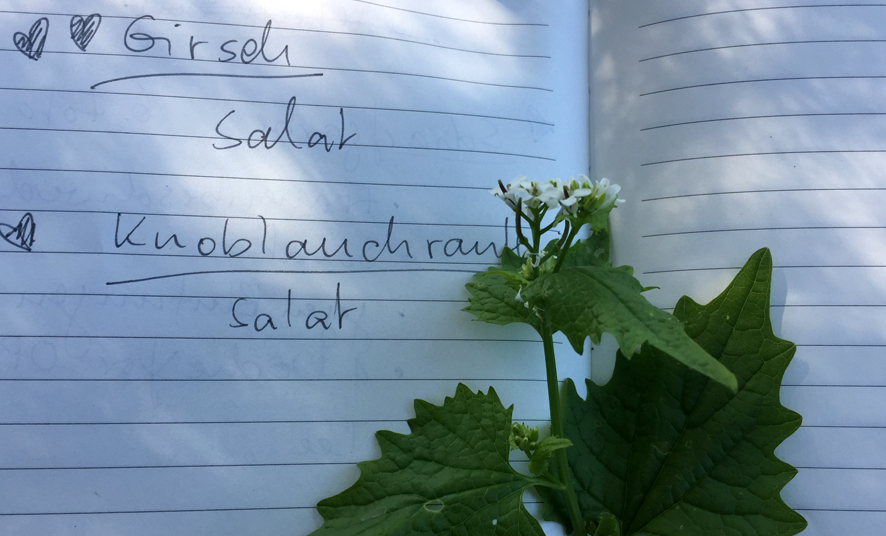 Girsch
Salat
Knoblauchrau
Salat